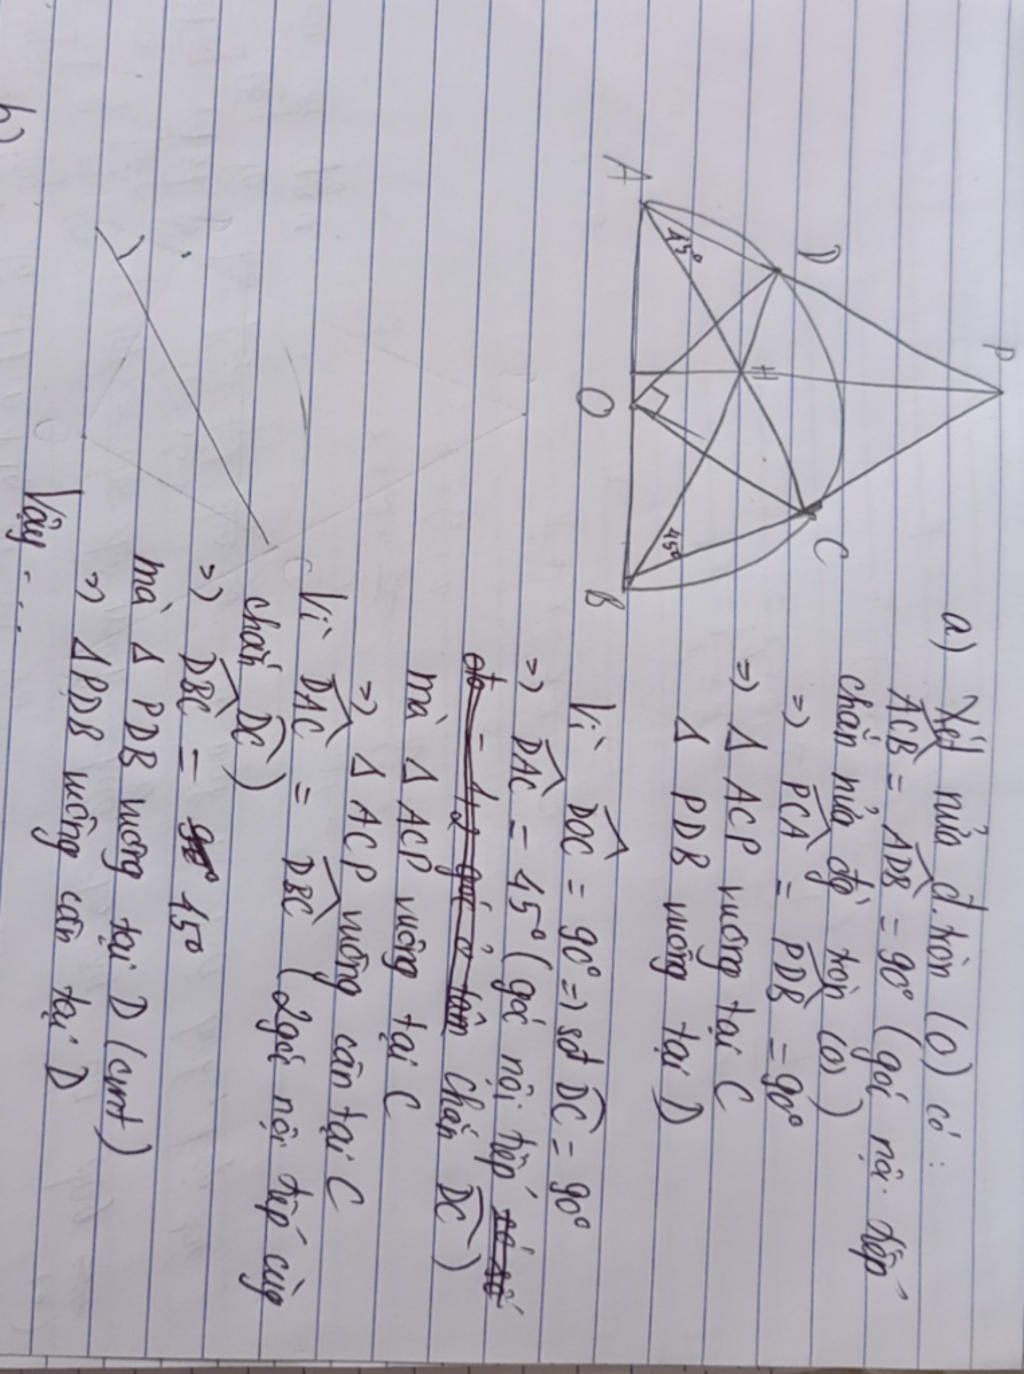 P
D
C
H
A
O
B
45°
45°
a) Xét nửa đ.tròn (O) có:
ACB = ADB = 90° (góc nội tiếp
chắn nửa đg tròn (O))
=> PCA = PDB = 90°
=> Δ ACP vuông tại C
Δ PDB vuông tại D
Vì DOC = 90° => sđ DC = 90°
=> DAC = 45° (góc nội tiếp
chắn DC)
mà Δ ACP vuông tại C
=> Δ ACP vuông cân tại C
Vì DAC = DBC (2 góc nội tiếp cùng
chắn DC)
=> DBC = 45°
mà Δ PDB vuông tại D (cmt)
=> Δ PDB vuông cân tại D
Vậy ....
b)